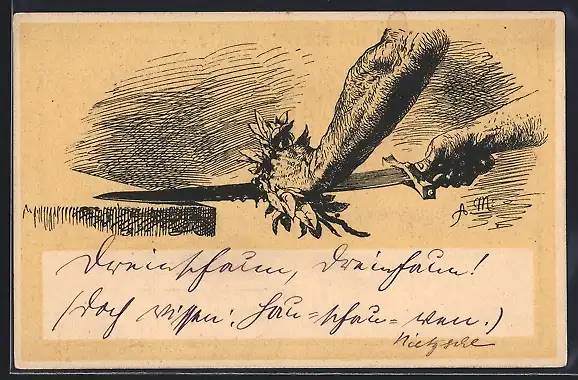 Dreinschaun, Dreinhaun!
(Doch wissen: Hau=schau=wen.)
Nietzsche